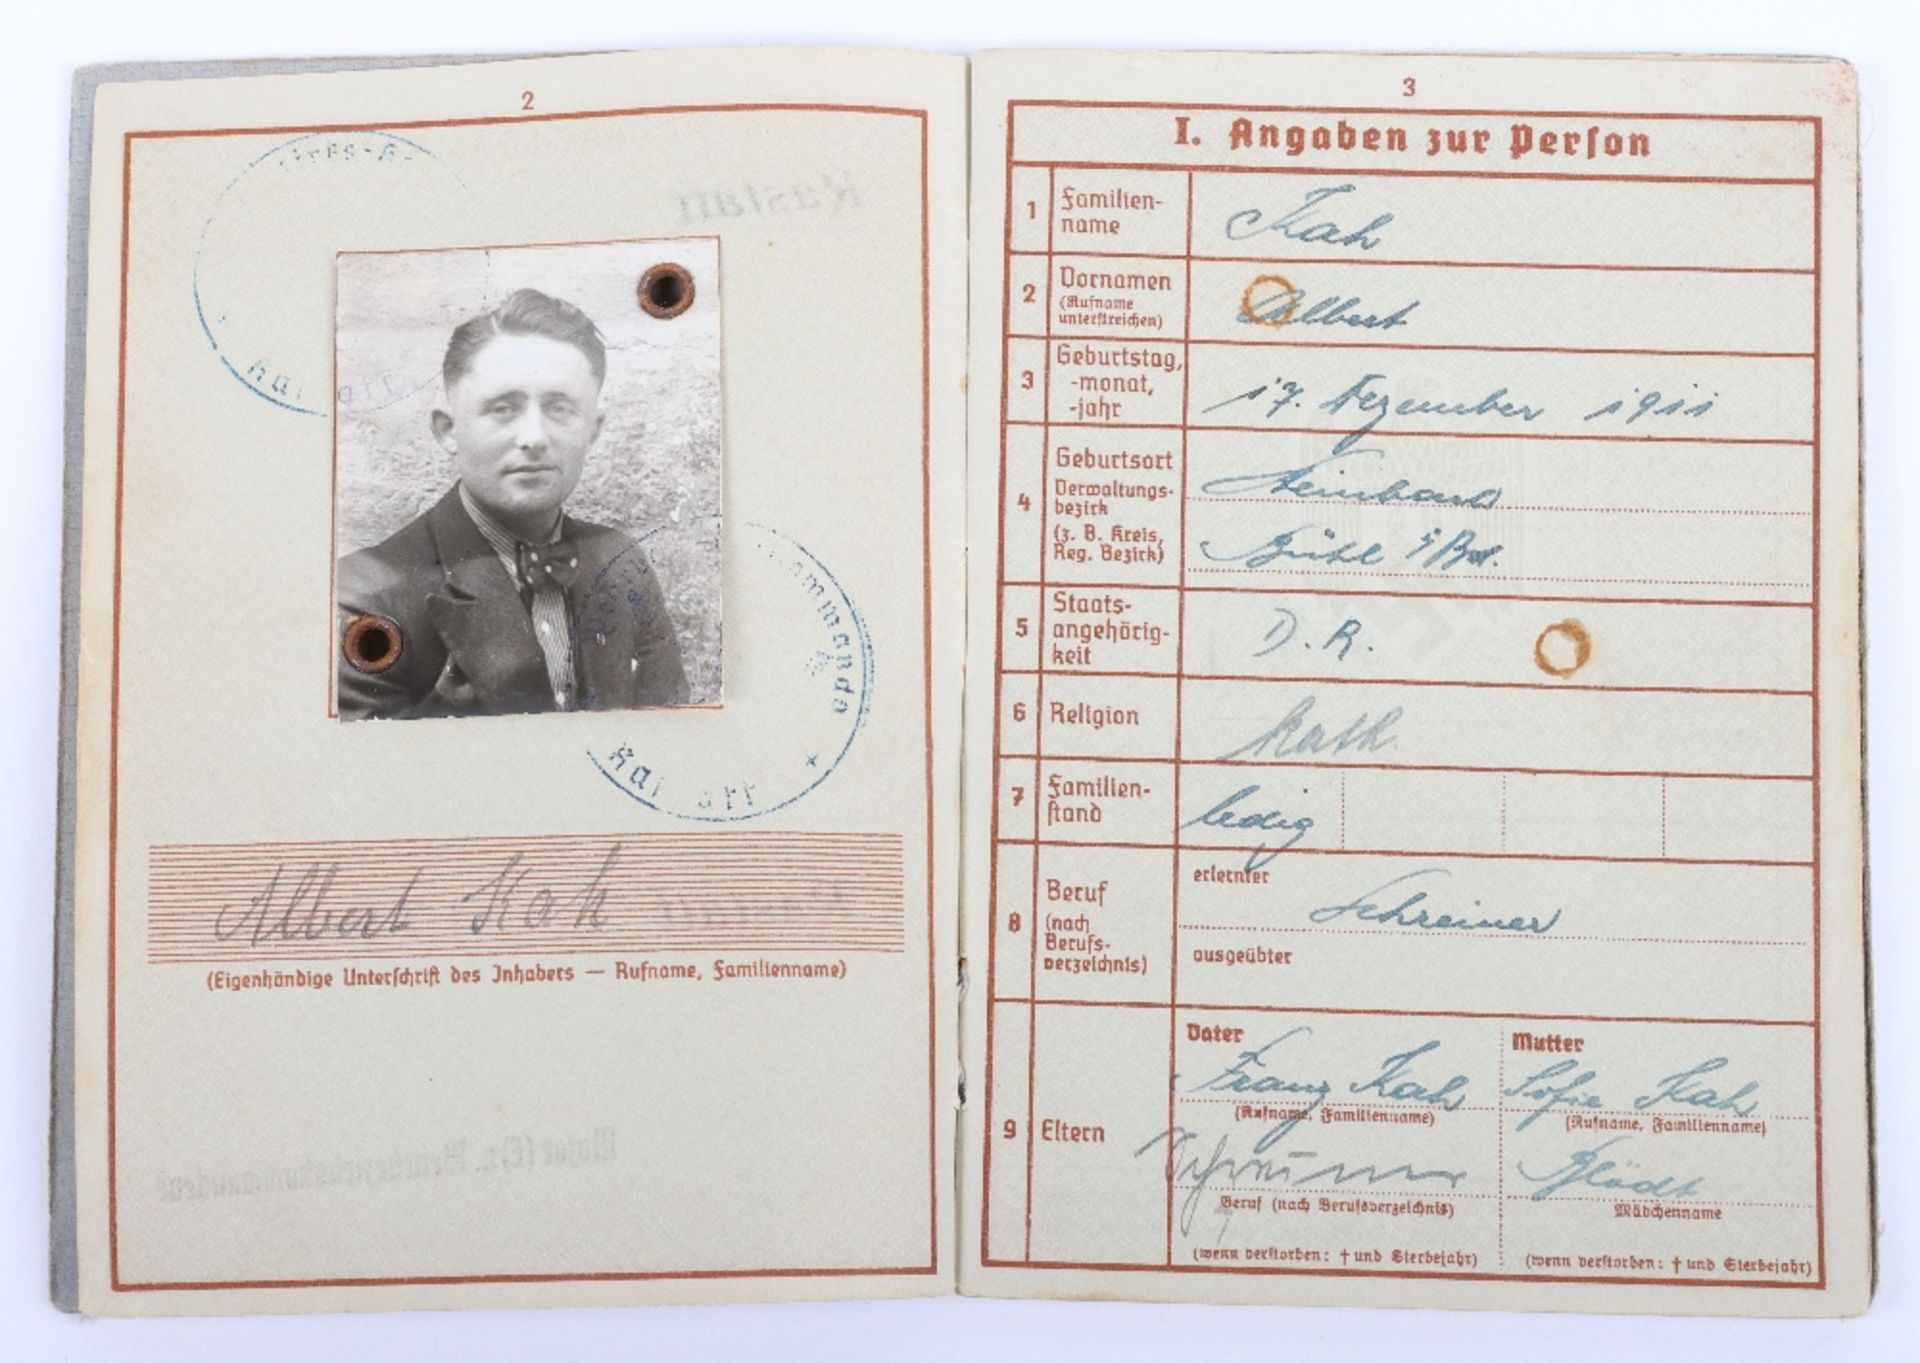 2
Albert Kah
(Eigenhändige Unterschrift des Inhabers — Rufname, Familienname)
3
I. Angaben zur Person
1 Familien-
name
Kah
2 Vornamen
(Rufname
unterstreichen)
Albert
3 Geburtstag,
-monat,
-jahr
17. Dezember 1911
4 Geburtsort
Verwaltungs-
bezirk
(z. B. Kreis,
Reg. Bezirk)
Steinbach
Bühl i/Bd.
5 Staats-
angehörig-
keit
D. R.
6 Religion
kath.
7 Familien-
stand
ledig
8 Beruf
(nach
Berufs-
verzeichnis)
erlernter
Schreiner
ausgeübter
9 Eltern
Vater
Franz Kah
(Rufname, Familienname)
Beruf (nach Berufsverzeichnis)
(wenn verstorben: † und Sterbejahr)
Mutter
Sofie Kah
(Rufname, Familienname)
Blödt
Mädchenname
(wenn verstorben: † und Sterbejahr)